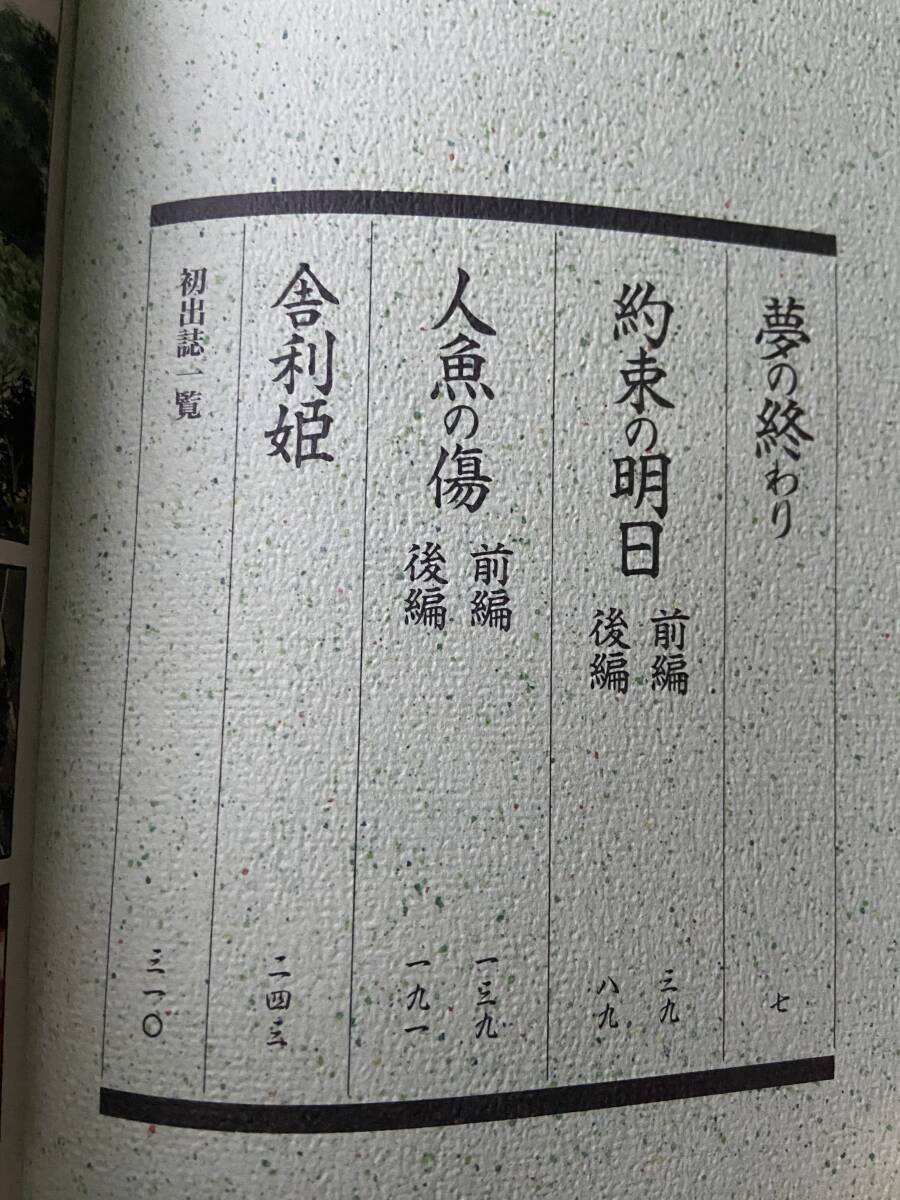 夢の終わり
七
約束の明日
前編
三九
後編
八九
人魚の傷
前編
一三九
後編
一九一
舎利姫
二四三
初出誌一覧
三一〇